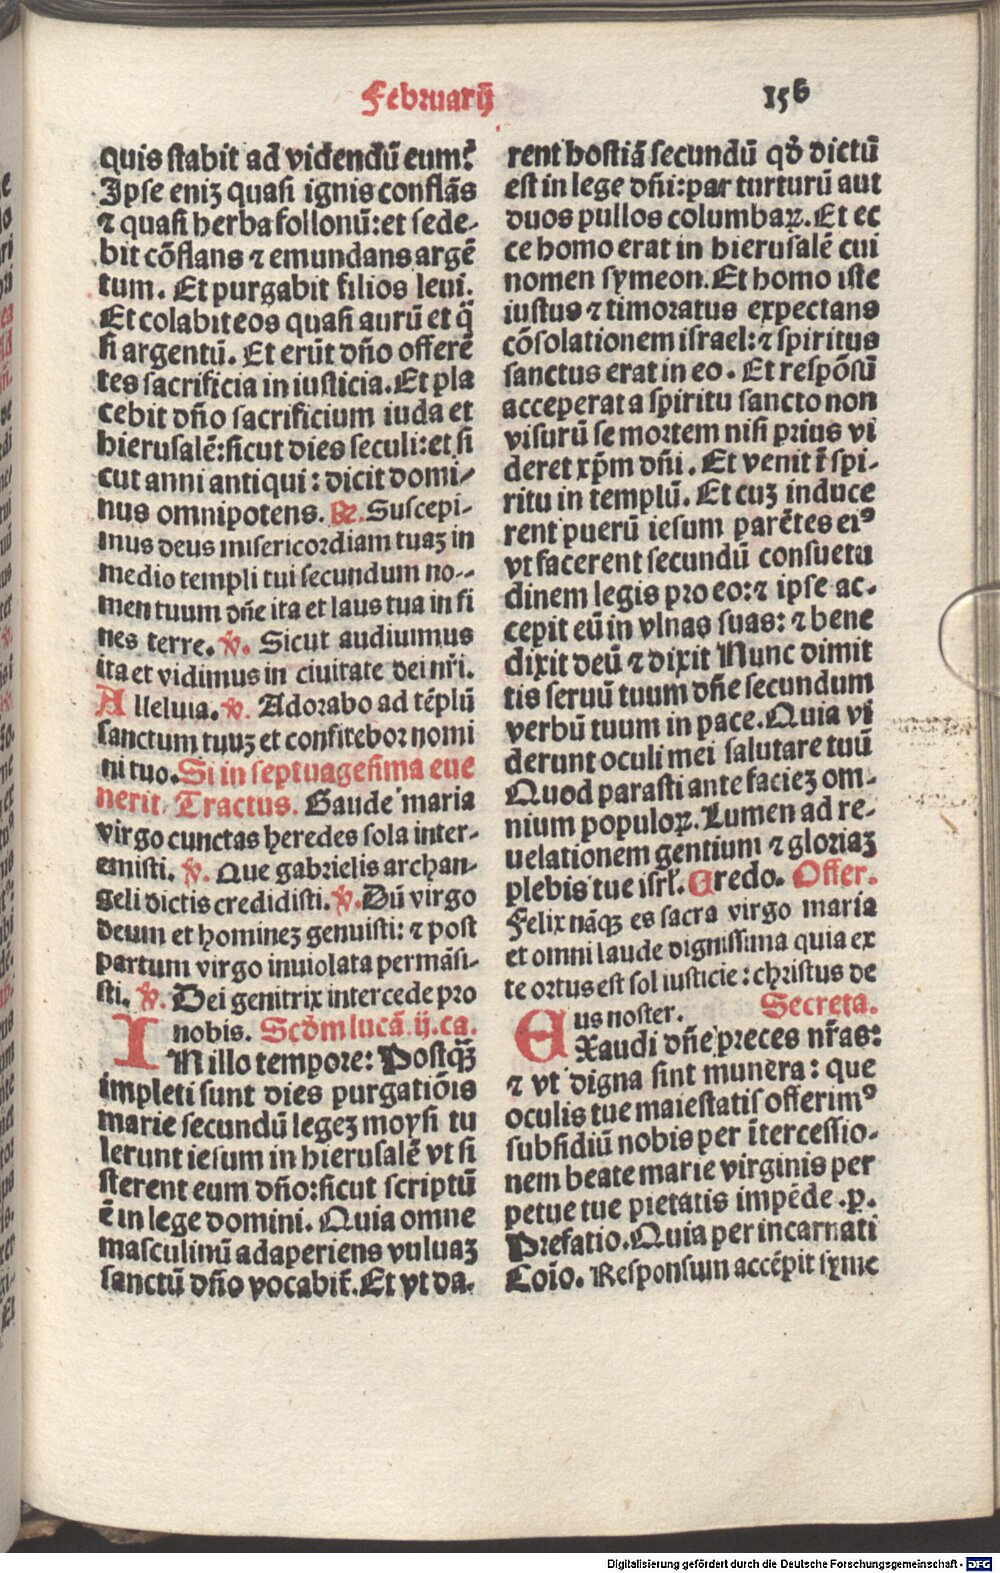 Februarij
156
quis stabit ad videndū eum?
Ipse eniꝫ quasi ignis conflās
⁊ quasi herba follonū: et sede-
bit cōflans ⁊ emundans argē
tum. Et purgabit filios leui.
Et colabit eos quasi aurū et q̄
si argentū. Et erūt dño offerē
tes sacrificia in iusticia. Et pla
cebit dño sacrificium iuda et
hierusalē: sicut dies seculi: et si
cut anni antiqui: dicit domi-
nus omnipotens. ℞. Suscepi-
mus deus misericordiam tuaꝫ in
medio templi tui secundum no-
men tuum dñe ita et laus tua in fi
nes terre. ℣. Sicut audiuimus
ita et vidimus in ciuitate dei nr̄i.
Alleluia. ℣. Adorabo ad tēplū
sanctum tuuꝫ et confitebor nomi
ni tuo. Si in septuagesima eue
nerit. Tractus. Gaude maria
virgo cunctas hereses sola inter-
emisti. ℣. Que gabrielis archan-
geli dictis credidisti. ℣. Dū virgo
deum et homineꝫ genuisti: ⁊ post
partum virgo inuiolata permāsi-
sti. ℣. Dei genitrix intercede pro
nobis. Scd̄m lucā. ij. ca.
IN illo tempore: Postq̄ꝫ
impleti sunt dies purgatiōis
marie secundū legeꝫ moysi tu
lerunt iesum in hierusalē vt si
sterent eum dño: sicut scriptū
ē in lege domini. Quia omne
masculinū adaperiens vuluaꝫ
sanctū dño vocabit̄. Et vt da-
rent hostiā secundū qd̄ dictū
est in lege dñi: par turturū aut
duos pullos columbaꝝ. Et ec
ce homo erat in hierusalē cui
nomen symeon. Et homo iste
iustus ⁊ timoratus expectans
cōsolationem israel: ⁊ spiritus
sanctus erat in eo. Et respōsū
acceperat a spiritu sancto non
visurū se mortem nisi prius vi
deret xp̄m dñi. Et venit ī spi-
ritu in templū. Et cuꝫ induce
rent puerū iesum parētes eiꝰ
vt facerent secundū consuetu
dinem legis pro eo: ⁊ ipse ac-
cepit eū in vlnas suas: ⁊ bene
dixit deū ⁊ dixit Nunc dimit
tis seruū tuum dñe secundum
verbū tuum in pace. Quia vi
derunt oculi mei salutare tuū
Quod parasti ante facieꝫ om-
nium populoꝝ. Lumen ad re-
uelationem gentium ⁊ gloriaꝫ
plebis tue isrl̄. Credo. Offer.
Felix nāqꝫ es sacra virgo maria
et omni laude dignissima quia ex
te ortus est sol iusticie: christus de
us noster. Secreta.
EXaudi dñe preces nr̄as:
⁊ vt digna sint munera: que
oculis tue maiestatis offerimꝰ
subsidiū nobis per ītercessio-
nem beate marie virginis per
petue tue pietatis impēde. p.
Prefatio. Quia per incarnati
Coīo. Responsum accēpit syme
Digitalisierung gefördert durch die Deutsche Forschungsgemeinschaft - DFG